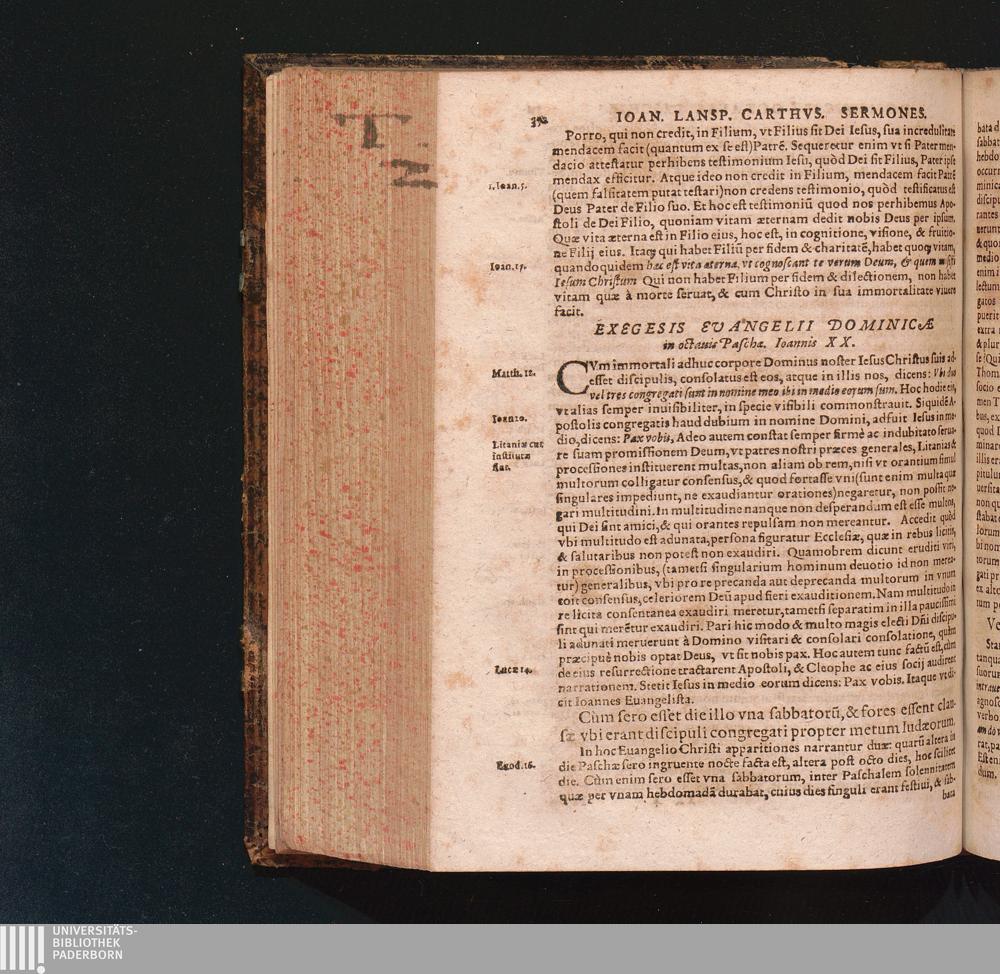 T
N
IOAN. LANSP. CARTHVS. SERMONES.
Porro, qui non credit, in Filium, vt Filius sit Dei Iesus, sua incredulitate
mendacem facit (quantum ex se est) Patrē. Sequeretur enim vt si Pater men-
dacio attestatur perhibens testimonium Iesu, quòd Dei sit Filius, Pater ipse
mendax efficitur. Atque ideo non credit in Filium, mendacem facit Patrē
1. Ioan. 5.
(quem falsitatem putat testari) non credens testimonio, quòd testificatus est
Deus Pater de Filio suo. Et hoc est testimoniū quod nos perhibemus Apo-
stoli de Dei Filio, quoniam vitam æternam dedit nobis Deus per ipsum.
Quæ vita æterna est in Filio eius, hoc est, in cognitione, visione, & fruitio-
ne Filij eius. Itaq; qui habet Filiū per fidem & charitatē, habet quoq; vitam,
Ioan. 17.
quandoquidem hæc est vita æterna, vt cognoscant te verum Deum, & quem misisti
Iesum Christum Qui non habet Filium per fidem & dilectionem, non habet
vitam quæ à morte seruat, & cum Christo in sua immortalitate viuere
facit.
EXEGESIS EVANGELII DOMINICÆ
in octauis Paschæ. Ioannis XX.
CVm immortali adhuc corpore Dominus noster Iesus Christus suis ad-
Matth. 18.
esset discipulis, consolatus est eos, atque in illis nos, dicens: Vbi duo
vel tres congregati sunt in nomine meo ibi in medio eorum sum. Hoc hodie eis,
vt alias semper inuisibiliter, in specie visibili commonstrauit. Siquidē A-
Ioan 20.
postolis congregatis haud dubium in nomine Domini, adfuit Iesus in me-
dio, dicens: Pax vobis, Adeo autem constat semper firmè ac indubitato serua-
Litaniæ cur
institutæ
re suam promissionem Deum, vt patres nostri præces generales, Litanias &
processiones instituerent multas, non aliam ob rem, nisi vt orantium simul
multorum colligatur consensus, & quod fortasse vni (sunt enim multa quæ
singulares impediunt, ne exaudiantur orationes) negaretur, non possit ne-
gari multitudini. In multitudine nanque non desperandum est esse multos,
qui Dei sint amici, & qui orantes repulsam non mereantur. Accedit quòd
vbi multitudo est adunata, persona figuratur Ecclesiæ, quæ in rebus licitis,
& salutaribus non potest non exaudiri. Quamobrem dicunt eruditi viri,
in processionibus, (tametsi singularium hominum deuotio id non merea-
tur) generalibus, vbi pro re precanda aut deprecanda multorum in vnum
coit consensus, celeriorem Deū apud fieri exauditionem. Nam multitudo in
re licita consentanea exaudiri meretur, tametsi separatim in illa paucissimi
sint qui merētur exaudiri. Pari hic modo & multo magis electi Dñi discipu-
li adunati meruerunt à Domino visitari & consolari consolatione, quàm
præcipuè nobis optat Deus, vt sit nobis pax. Hoc autem tunc factū est, cùm
de eius resurrectione tractarent Apostoli, & Cleophe ac eius socij audirent
narrationem. Stetit Iesus in medio eorum dicens: Pax vobis. Itaque vt di-
cit Ioannes Euangelista.
Cùm sero esset die illo vna sabbatorū, & fores essent clau-
sæ vbi erant discipuli congregati propter metum Iudæorum.
In hoc Euangelio Christi apparitiones narrantur duæ: quarū altera in
die Paschæ sero ingruente nocte facta est, altera post octo dies, hoc scilicet
die. Cùm enim sero esset vna sabbatorum, inter Paschalem solennitatem
quæ per vnam hebdomadā durabat, cuius dies singuli erant festiui, & sab-
bata
UNIVERSITÄTS-
BIBLIOTHEK
PADERBORN